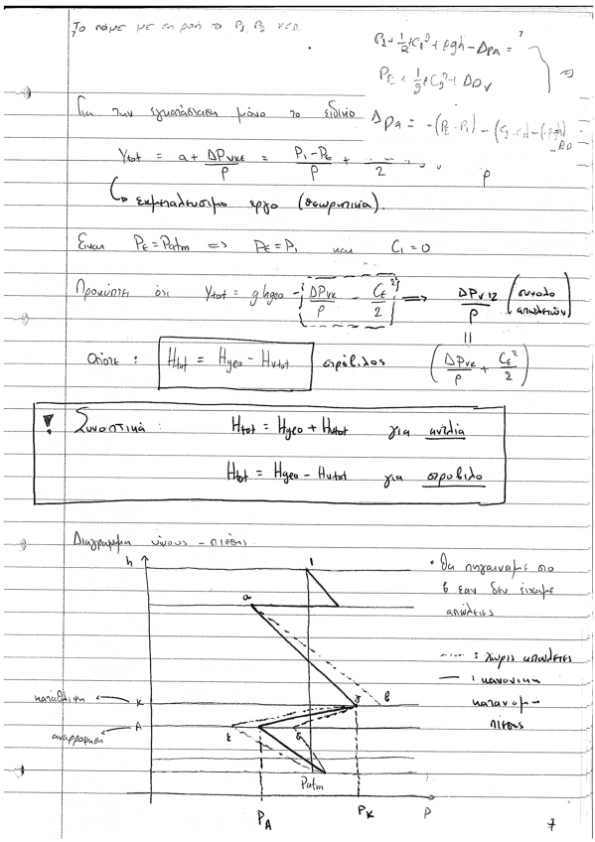 Το πάμε με τη ροή το P₁, P₂ κ.τ.λ.
P₁ + ½ρC₁² + ρgh - Δp_A =
P_E + ½ρC₂² + ΔP_V ⇒
Για την εγκατάσταση μόνο το ειδικό
ΔP_a = -(P_E - P₁) -
Y_tot = a + ΔP_VKE/ρ = P₁-P_E/ρ +
↳ εκμεταλλεύσιμο έργο (θεωρητικά).
Είναι P_E = Patm ⇒ P_E = P₁ και C₁ = 0
Προκύπτει ότι Y_tot = g hgeo - { ΔP_VK/ρ - C_E²/2 } ⇒ ΔP_V12/ρ (σύνολο απωλειών)
=
Οπότε : H_tot = H_geo - H_vtot στρόβιλος ( ΔP_VK/ρ + C_E²/2 )
! Συνοπτικά : H_tot = H_geo + H_vtot για αντλία
H_tot = H_geo - H_vtot για στρόβιλο
Διαγραμμα ύψους - πίεσης
h
1
• Θα πηγαίναμε στο
β εαν δεν είχαμε
απώλειες
a
---- : χωρίς απώλειες
— : κανονική
κατανομη
πίεσης
καταθλιψη ← K
γ
β
αναρρόφηση ← A
ε
δ
Patm
P_A
P_K
P
7